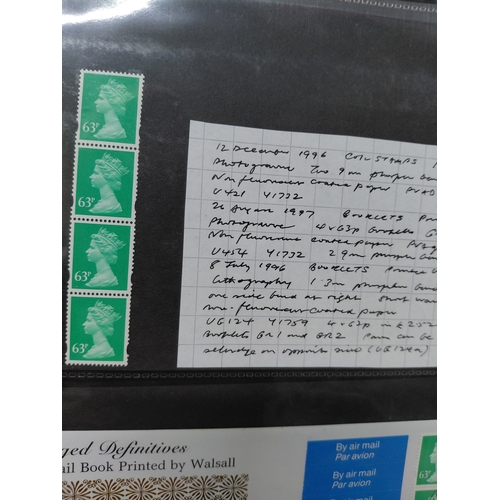 63P
63P
63P
63P
12 December 1996 COIL STAMPS
Photogravure Two 9mm phosphor
Non fluorescent coated paper PVAD
U421 Y1732
26 August 1997 BOOKLETS
Photogravure 4x63p
Non fluorescent coated paper
U454 Y1732 2 9mm phosphor
8 July 1996 BOOKLETS
Lithography 1 3mm phosphor
one side band at right short
non-fluorescent coated paper
UG124 Y1759 4x63p in £2.52
Booklets GR1 and GR2 Pane can be
selvedge on opposite side (UG124a)
ged Definitives
ail Book Printed by Walsall
By air mail
Par avion
By air mail
Par avion
By air mail
Par avion